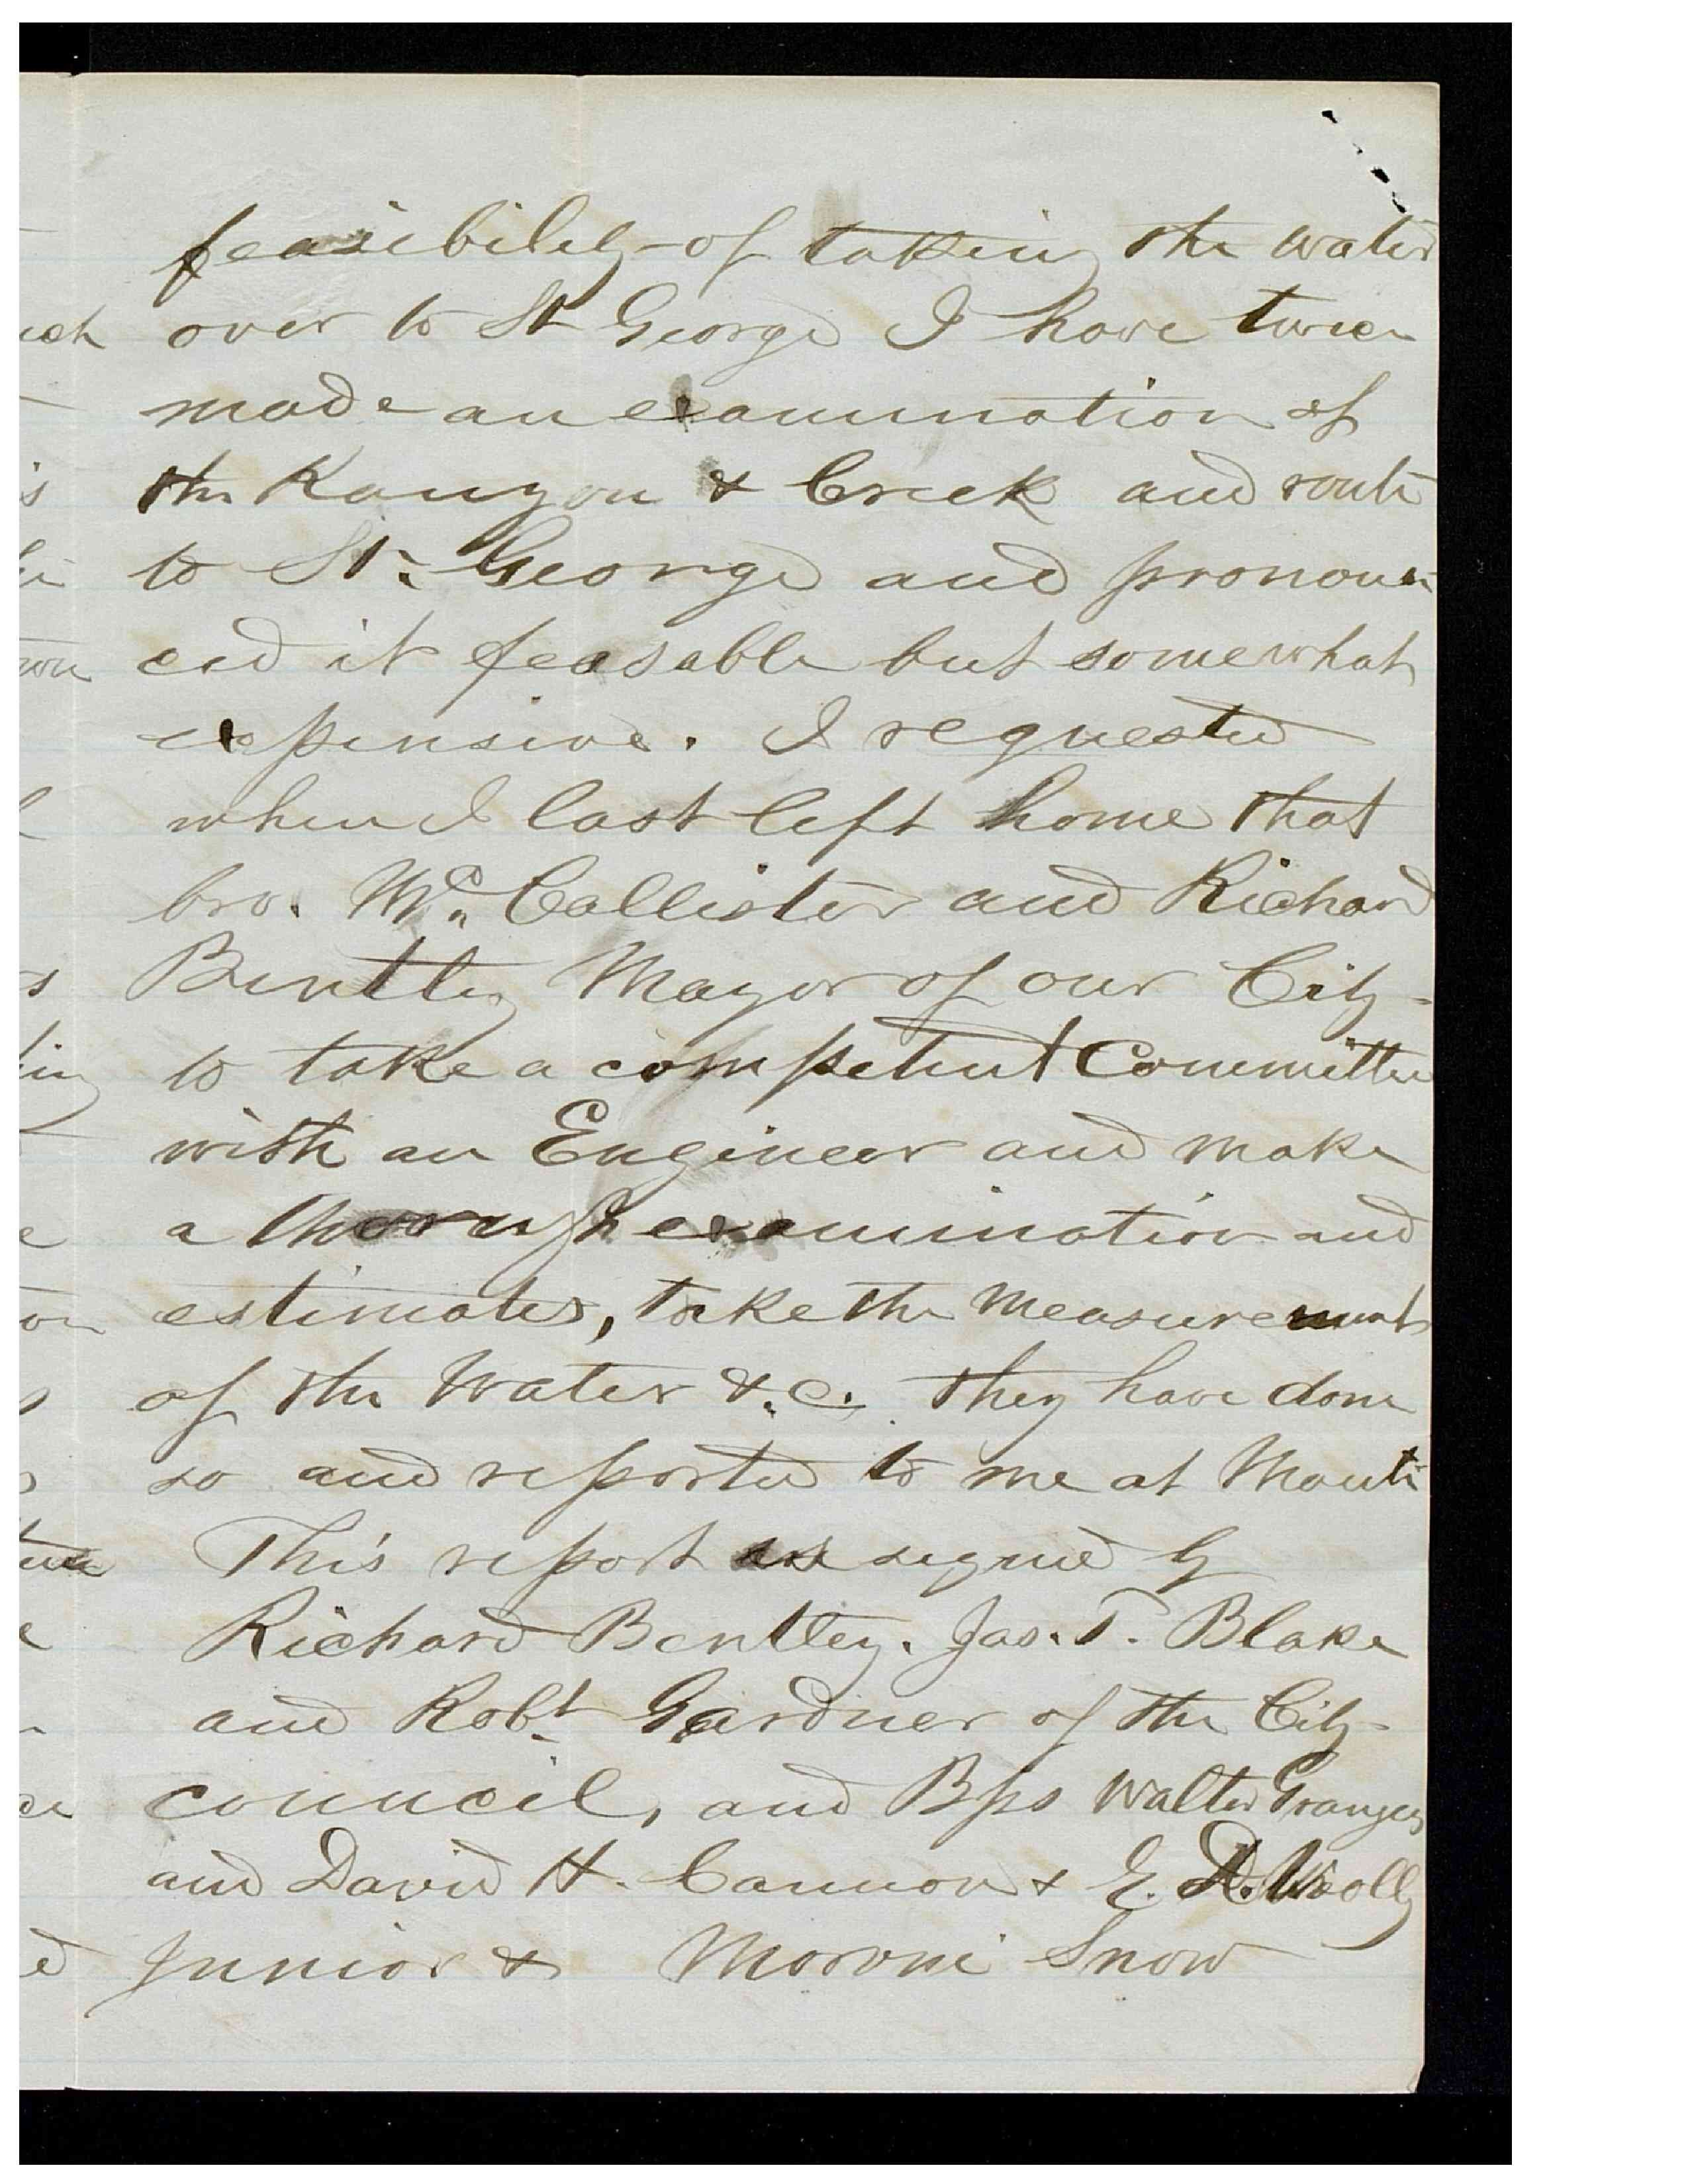 feasibility of taking the water
over to St George I have twice
made an examination of
the Kanyon & Creek and route
to St. George and pronoun-
ced it feasable but somewhat
expensive. I requested
when I last left home that
bro. Mc. Callister and Richard
Bentley Mayor of our City
to take a competent Committee
with an Engineer and make
a thorough examination and
estimates, take the measurement
of the Water &.c. they have done
so and reported to me at Manti
This report is signed by
Richard Bentley. Jas. T. Blake
and Robt. Gardner of the City
council, and Bps Walter Granger
and David H. Cannon & E. D. Woolly
Junior & Moroni Snow